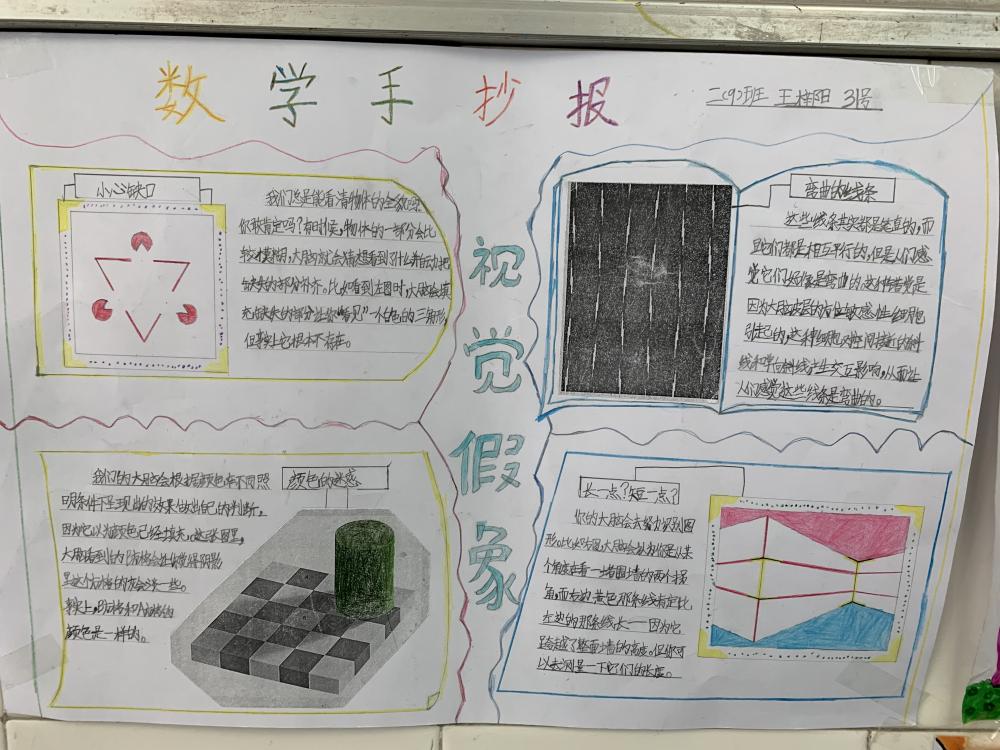 数学手抄报
二(9)班 王梓阳 31号
视觉假象
小心缺口
我们总是能看清物体的全貌吗?
你敢肯定吗?有时候,物体的一部分会比
较模糊,大脑就会猜想看到了什么并自动把
缺失的部分补齐。比如看到左图时,大脑会填
充缺失的部分让你“看见”一个白色的三角形,
但事实上它根本不存在。
弯曲的线条
这些线条其实都是笔直的,而
且它们都是相互平行的,但是人们感
觉它们好像是弯曲的。这种错觉是
因为大脑皮层的方位敏感性细胞
引起的,这种细胞对空间接近的斜
线和单向斜线产生交互影响,从而让
人们感觉这些线条是弯曲的。
颜色的迷惑
我们的大脑会根据颜色在不同照
明条件下呈现出的效果做出自己的判断,
因为它以为颜色已经填充。这张图里,
大脑看到的
是这个方格的灰会浅一些。
事实上,
颜色是一样的。
长一点?短一点?
你的大脑会去努力识别图
形。比如
个角度在看一堵围墙的两个拐
角,而右边黄色那条线肯定比
左边的那条线长——因为它
跨越了整面墙的高度。但你可
以去测量一下它们的长度。